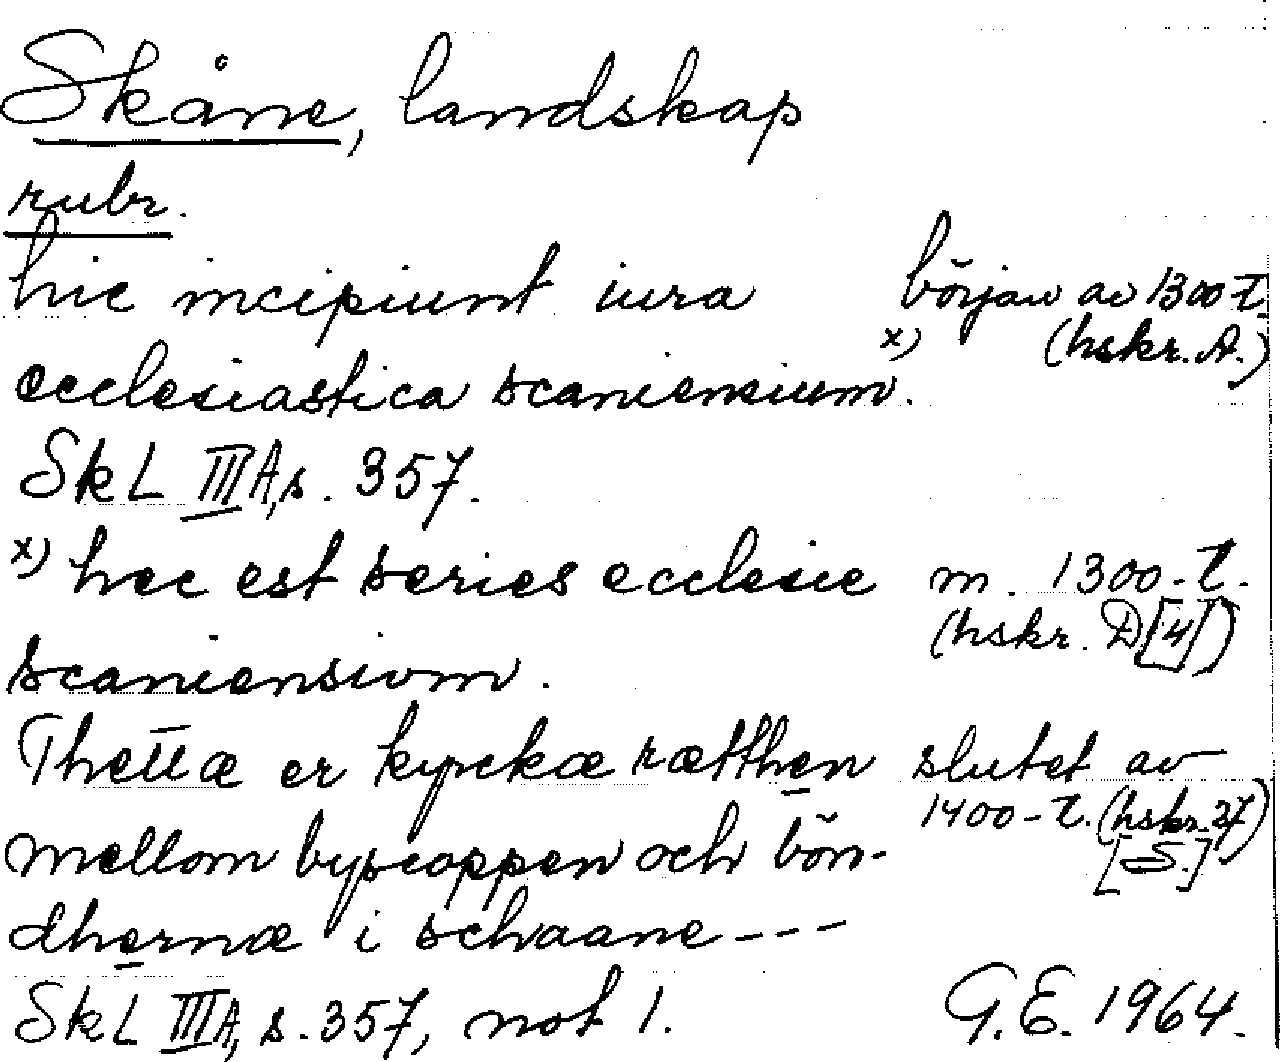 Skåne, landskap
rubr.
hic incipiunt iura början av 1300-t.
ecclesiastica scaniensium. x) (hskr. A.)
Sk L III A, s. 357.
x) hec est series ecclesie m. 1300-t.
scaniensivm. (hskr. D[4])
Thettæ er kyrckæ rætthen slutet av
mellom byscoppen och bön- 1400-t. (hskr. 27)
dhernæ i schaane --- [S.]
Sk L III A, s. 357, not 1. G.E. 1964.